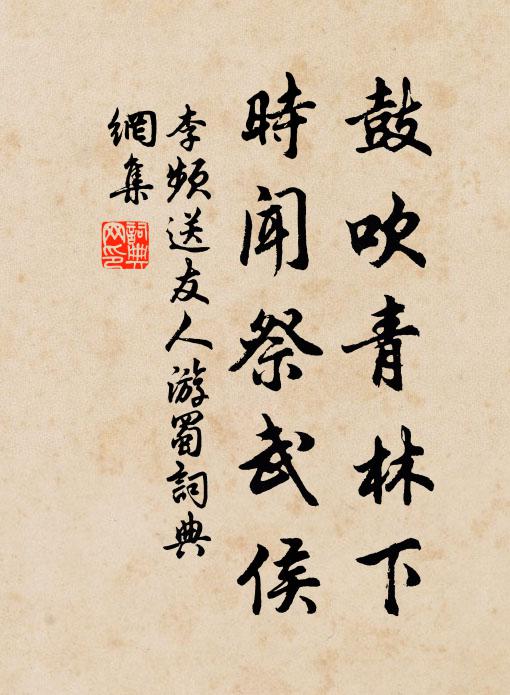 鼓吹青林下
時聞祭武侯
李頻送友人游蜀詞典
網集
詞典
网印